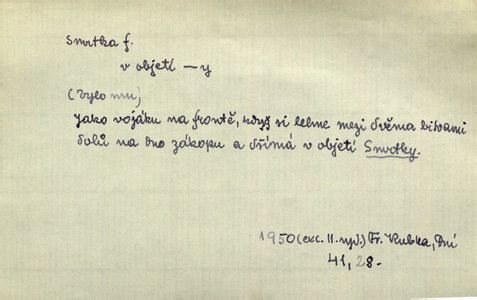 Smrtka f.
v objetí —y
(bylo mu)
jako vojáku na frontě, když si lehne mezi dvěma bitvami
dolů na dno zákopu a dřímá v objetí Smrtky.
1950 (exc. II. vyd.) Fr. Kubka, Dní
41, 28.-